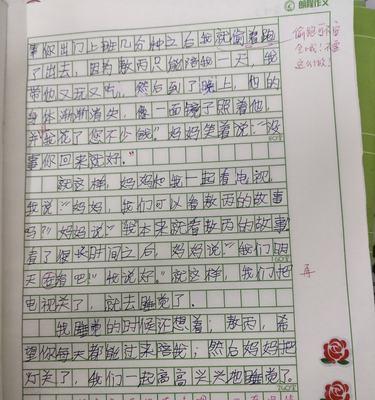 朗程作文
事你出门上班几分钟之后我就偷着跑
了出去，因为敖丙只能陪我一天，我
带他又玩又吃。然后到了晚上，他的
身体渐渐消失，像一面镜子照着他，
并我说了您不少钱。”妈妈笑着说：“没
事你回来就好。”
就这样，妈妈和我一起看电视，
我说：“妈妈，我们可以看敖丙的故事
吗？”妈妈说：“我本来就看敖丙的故事
看了很长时间之后，妈妈说：“我们明
天看吧”我说好。”就这样，我们把
电视关了，就去睡觉了。
我睡觉的时候还想着：敖丙，希
望你每天都能过来陪我；然后妈妈把
灯关了，我们一起高高兴兴地睡觉了。
偷跑可不安
全哦！不要
这么做！
再